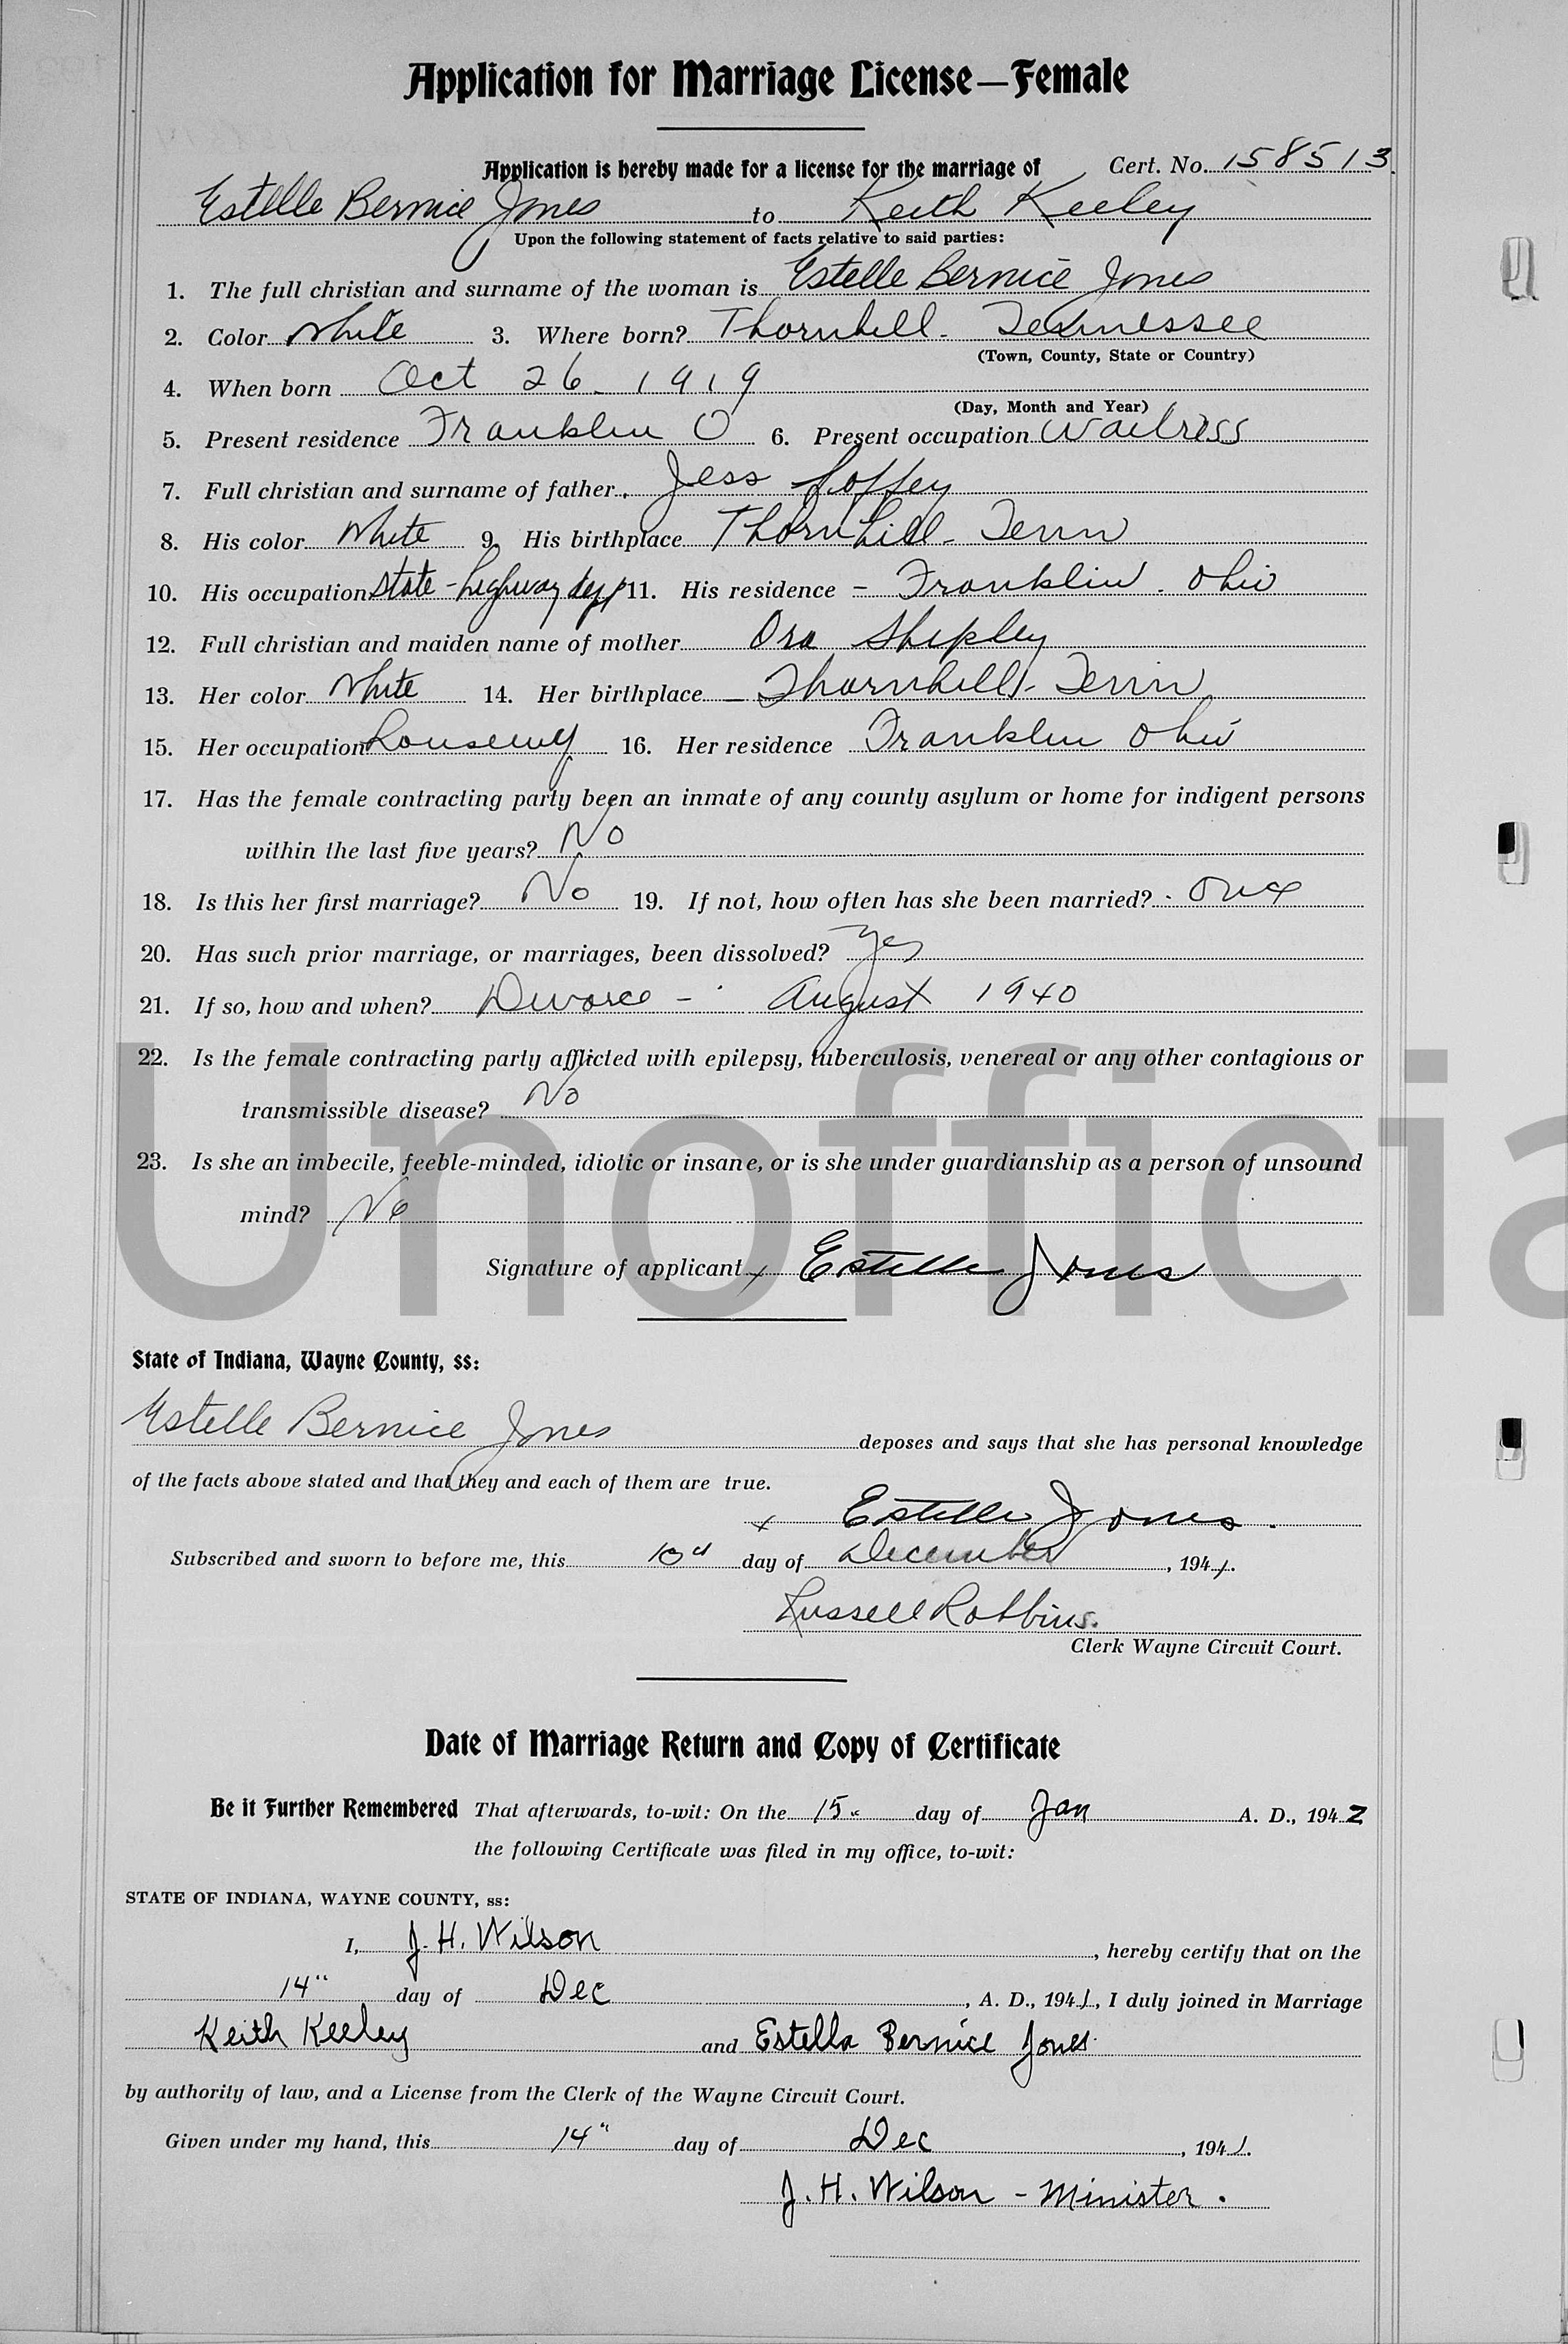 Application for Marriage License—Female
Application is hereby made for a license for the marriage of Cert. No. 158513
Estelle Bernice Jones to Keith Keeley
Upon the following statement of facts relative to said parties:
1. The full christian and surname of the woman is Estelle Bernice Jones
2. Color White 3. Where born? Thornhill - Tennessee
(Town, County, State or Country)
4. When born Oct 26 - 1919
(Day, Month and Year)
5. Present residence Franklin O 6. Present occupation Waitress
7. Full christian and surname of father Jess
8. His color White 9. His birthplace Thornhill - Tenn
10. His occupation State - highway dept 11. His residence - Franklin . Ohio
12. Full christian and maiden name of mother Ora Shipley
13. Her color White 14. Her birthplace — Thornhill - Tenn
15. Her occupation housewf 16. Her residence Franklin Ohio
17. Has the female contracting party been an inmate of any county asylum or home for indigent persons
within the last five years? No
18. Is this her first marriage? No 19. If not, how often has she been married? - once
20. Has such prior marriage, or marriages, been dissolved? yes
21. If so, how and when? Divorce - August 1940
22. Is the female contracting party afflicted with epilepsy, tuberculosis, venereal or any other contagious or
transmissible disease? No
23. Is she an imbecile, feeble-minded, idiotic or insane, or is she under guardianship as a person of unsound
mind? No
Unofficia
Signature of applicant x Estelle Jones
State of Indiana, Wayne County, ss:
Estelle Bernice Jones deposes and says that she has personal knowledge
of the facts above stated and that they and each of them are true.
x Estelle Jones.
Subscribed and sworn to before me, this 10" day of December, 1941.
Russell Robbins.
Clerk Wayne Circuit Court.
Date of Marriage Return and Copy of Certificate
Be it Further Remembered That afterwards, to-wit: On the 15" day of Jan A. D., 1942
the following Certificate was filed in my office, to-wit:
STATE OF INDIANA, WAYNE COUNTY, ss:
I, J. H. Wilson, hereby certify that on the
14" day of Dec, A. D., 1941, I duly joined in Marriage
Keith Keeley and Estella Bernice Jones
by authority of law, and a License from the Clerk of the Wayne Circuit Court.
Given under my hand, this 14" day of Dec, 1941.
J. H. Wilson - Minister.